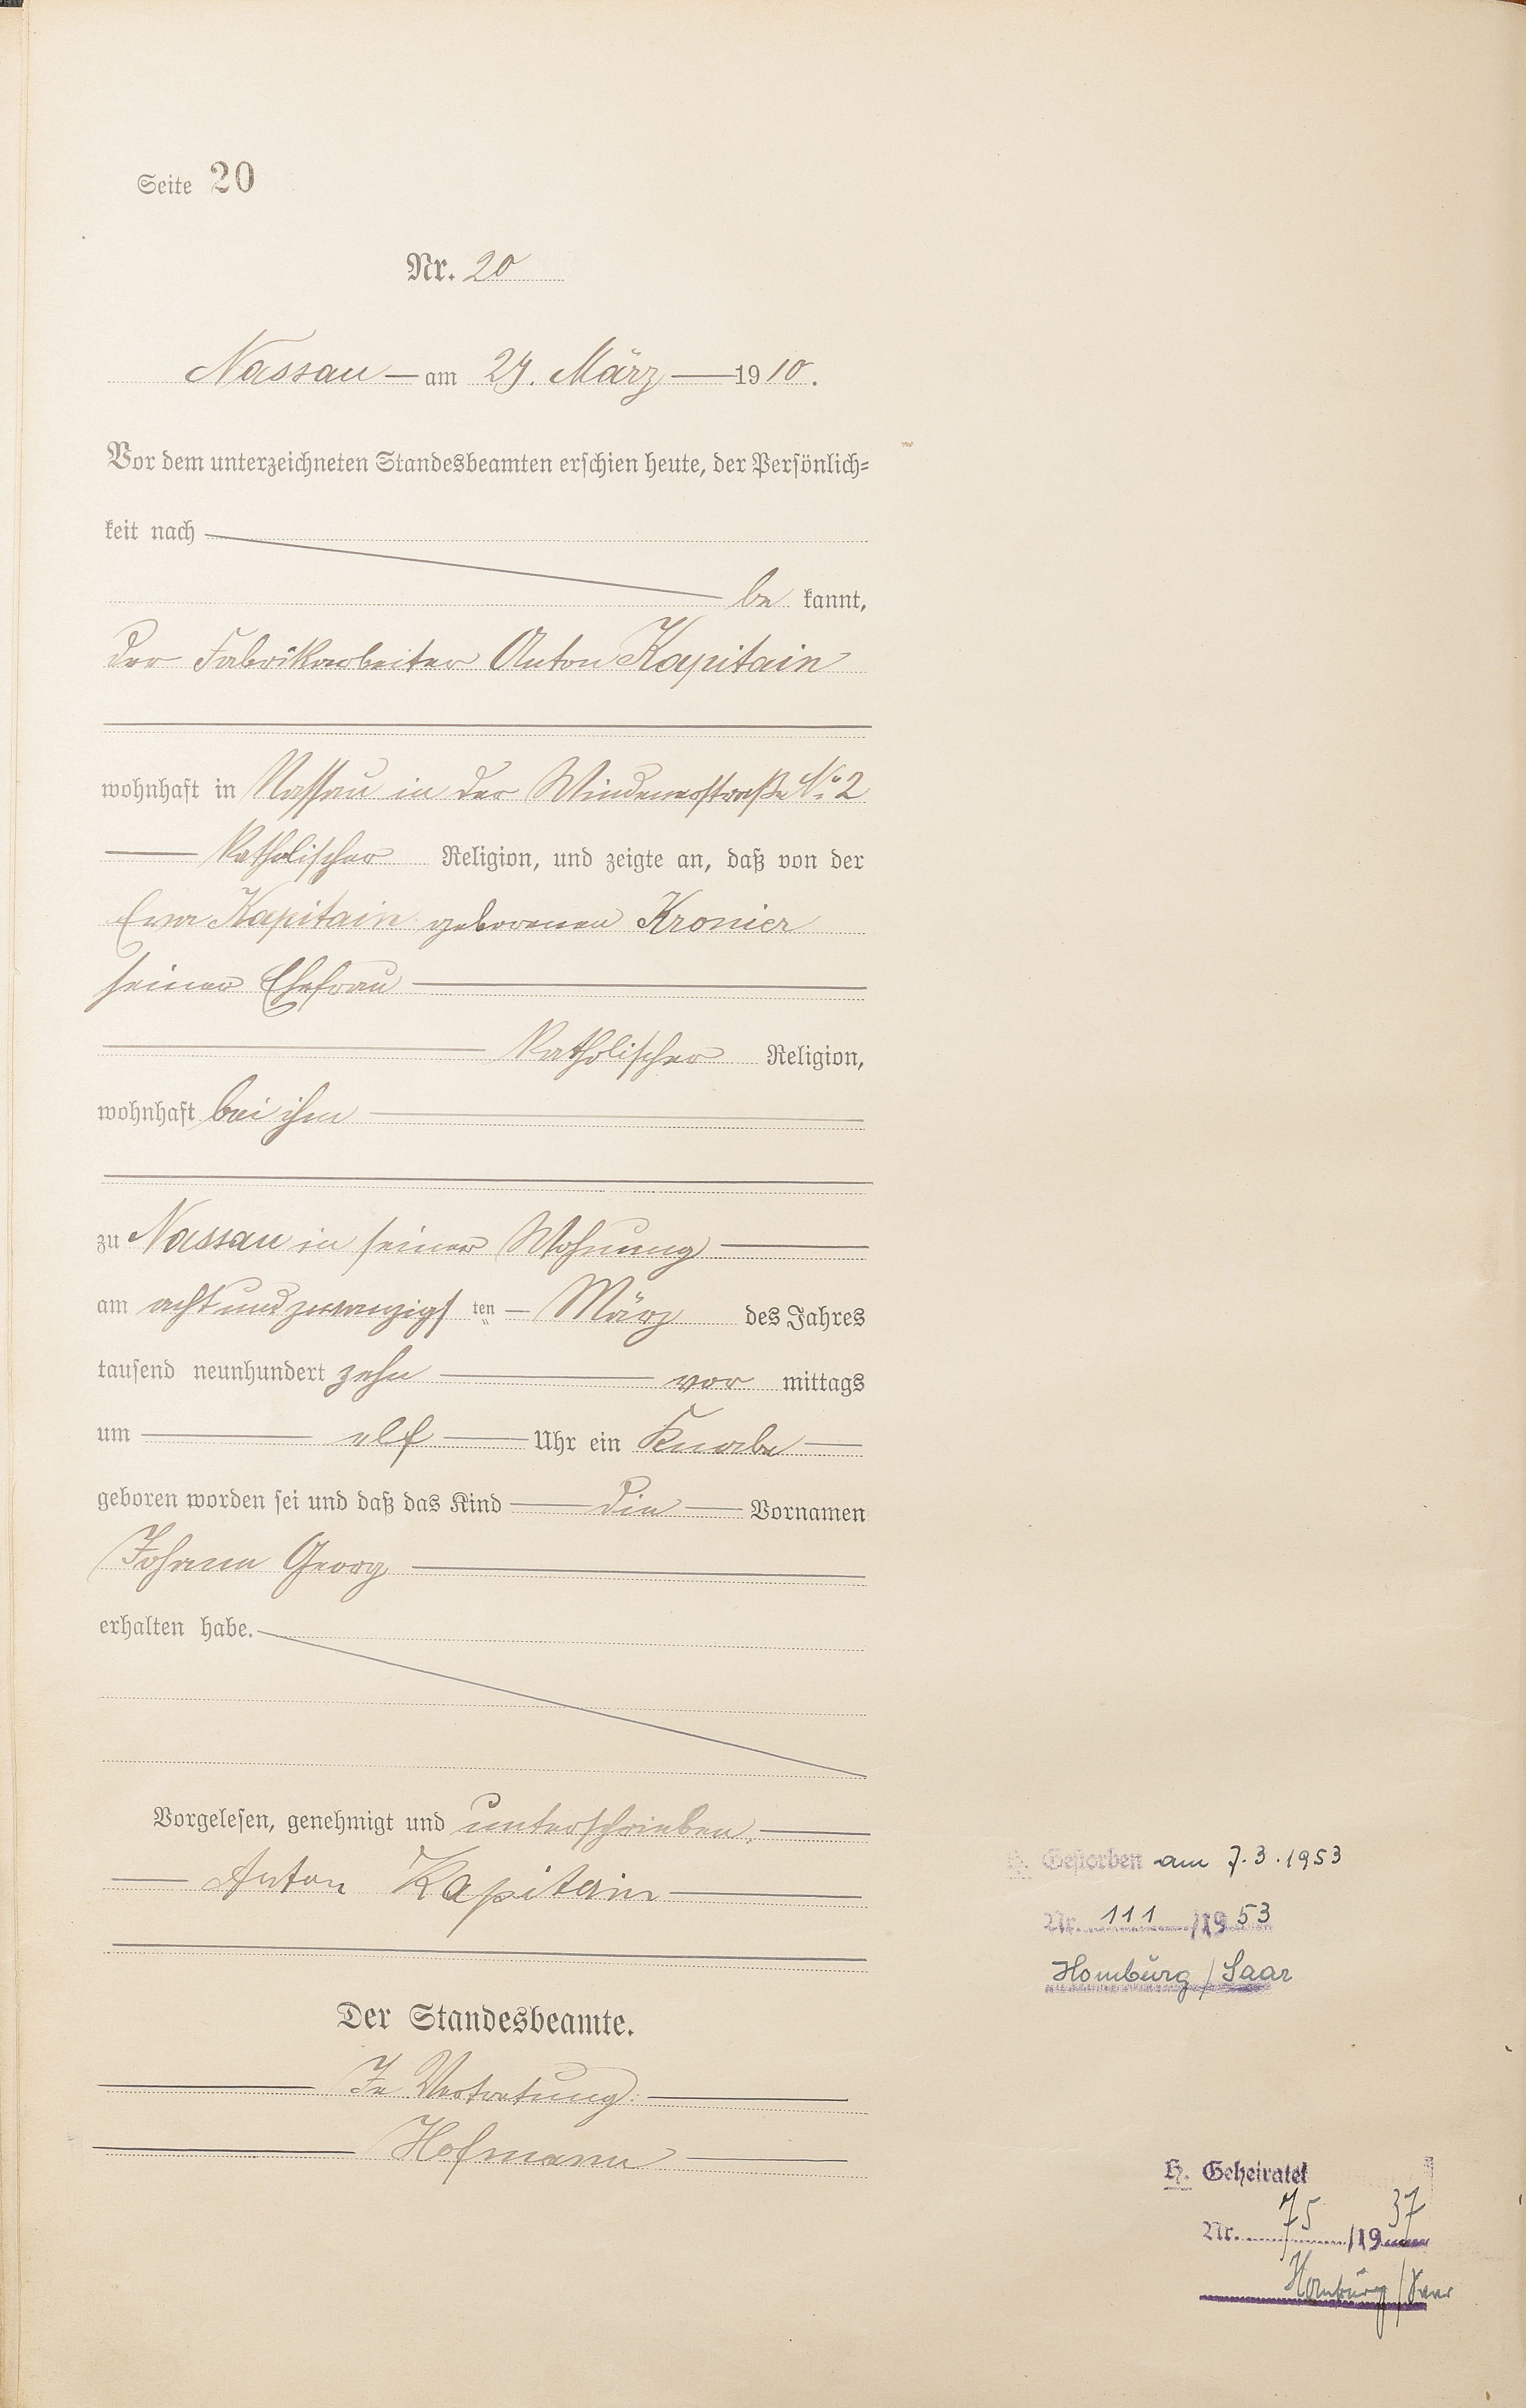 Seite 20
Nr. 20
Nassau — am 29. März — 1910.
Vor dem unterzeichneten Standesbeamten erschien heute, der Persönlich-
keit nach
be kannt,
der Fabrikarbeiter Anton Kapitain
wohnhaft in Nassau in der Windenerstraße No. 2
— katholischer Religion, und zeigte an, daß von der
Eva Kapitain geborenen Kronier
seiner Ehefrau —
— katholischer Religion,
wohnhaft bei ihm —
zu Nassau in seiner Wohnung —
am achtundzwanzigsten — März des Jahres
tausend neunhundert zehn — vor mittags
um — elf — Uhr ein Knabe —
geboren worden sei und daß das Kind — die — Vornamen
Johann Georg —
erhalten habe.
Vorgelesen, genehmigt und unterschrieben. —
— Anton Kapitain —
Der Standesbeamte.
— In Vertretung. —
— Hofmann —
Gestorben am 7.3.1953
Nr. 111 /1953
Homburg / Saar
H. Geheiratet
Nr. 75 /1937
Homburg / Saar